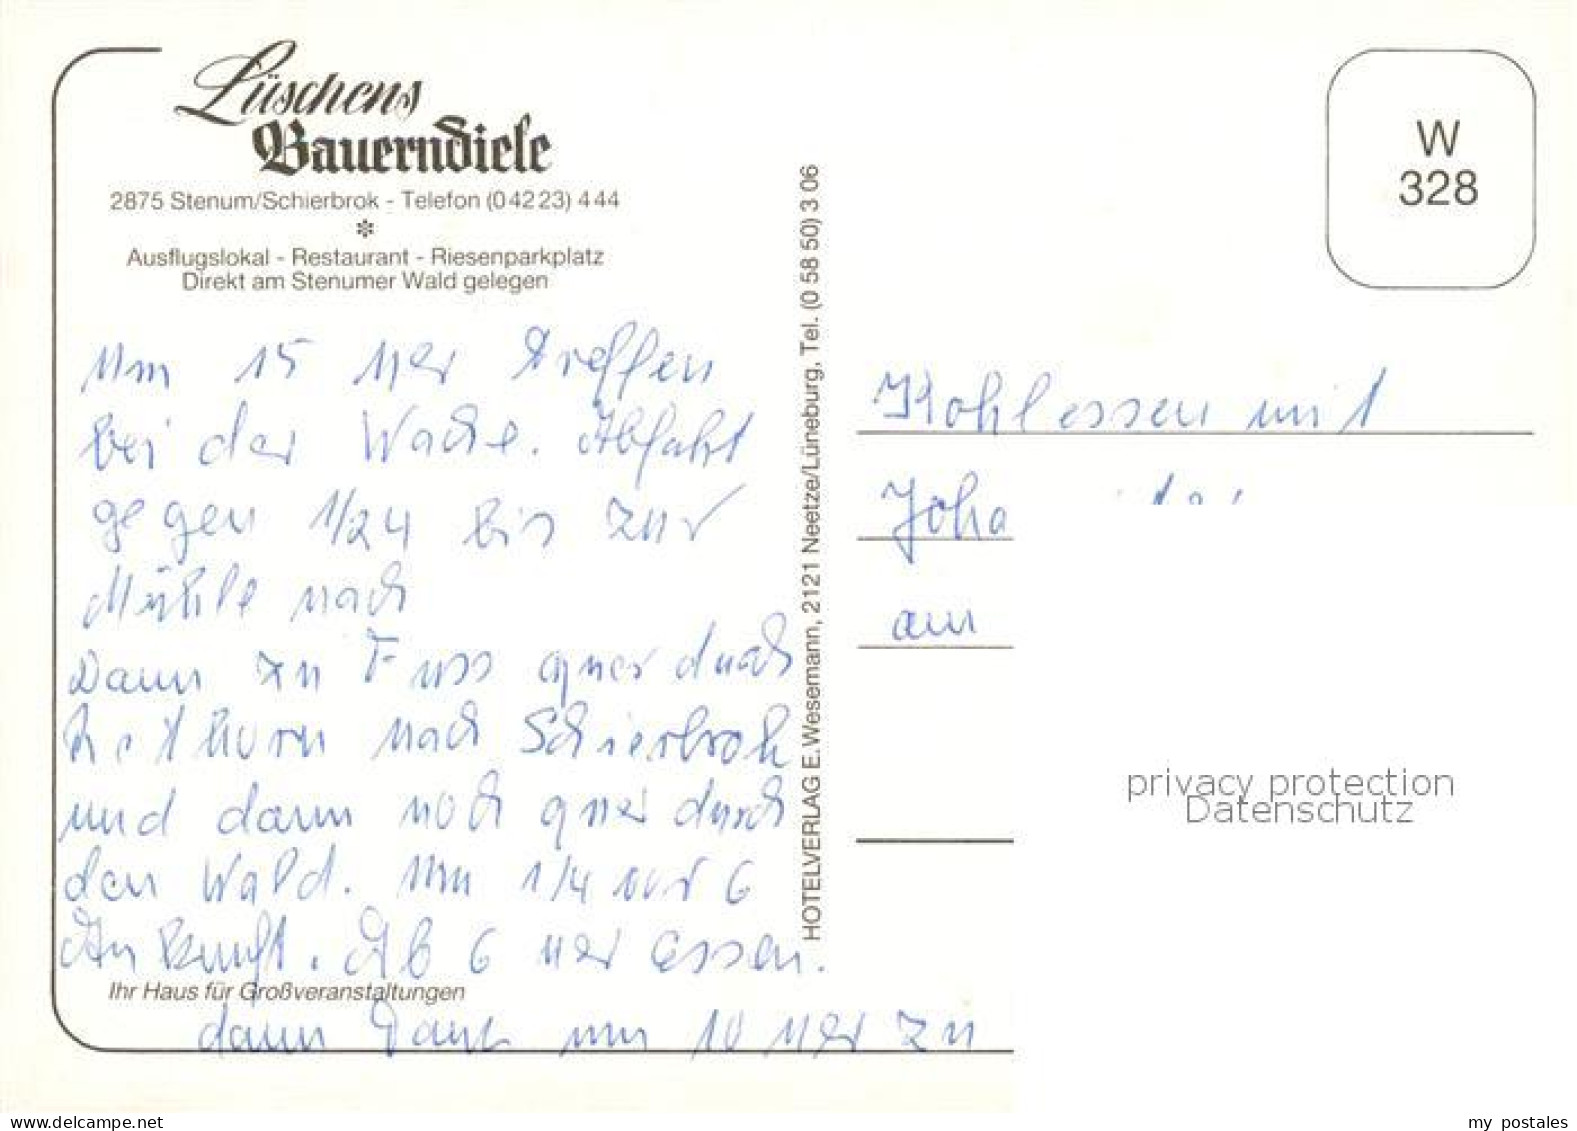 Lüschens
Bauerndiele
2875 Stenum/Schierbrok - Telefon (0 42 23) 4 44
*
Ausflugslokal - Restaurant - Riesenparkplatz
Direkt am Stenumer Wald gelegen
Um 15 Uer Treffen
bei der Wache. Abfahrt
gegen 1/24 bis zur
Mühle nach
Dann zu Fuss quer durch
Rethorn nach Schierbrok
und dann noch quer durch
den Wald. Um 1/4 vor 6
Ankunft. Ab 6 Uer Essen.
Ihr Haus für Großveranstaltungen
dann um 10 Uer zu
HOTELVERLAG E. Wesemann, 2121 Neetze/Lüneburg, Tel. (0 58 50) 3 06
W
328
Kohlessen mit
Joha
am
privacy protection
Datenschutz
www.delcampe.net
my postales